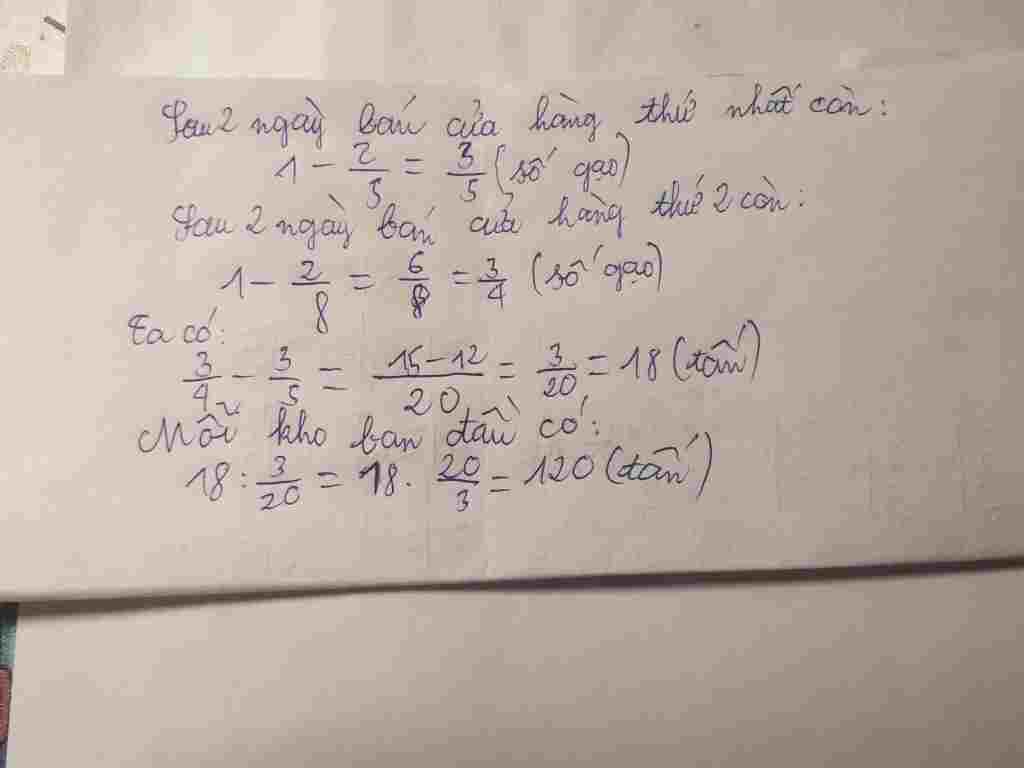 Sau 2 ngày bán cửa hàng thứ nhất còn:
1 - 2/5 = 3/5 (số gạo)
Sau 2 ngày bán cửa hàng thứ 2 còn:
1 - 2/8 = 6/8 = 3/4 (số gạo)
Ta có:
3/4 - 3/5 = (15-12)/20 = 3/20 = 18 (tấn)
Mỗi kho ban đầu có:
18 : 3/20 = 18 . 20/3 = 120 (tấn)